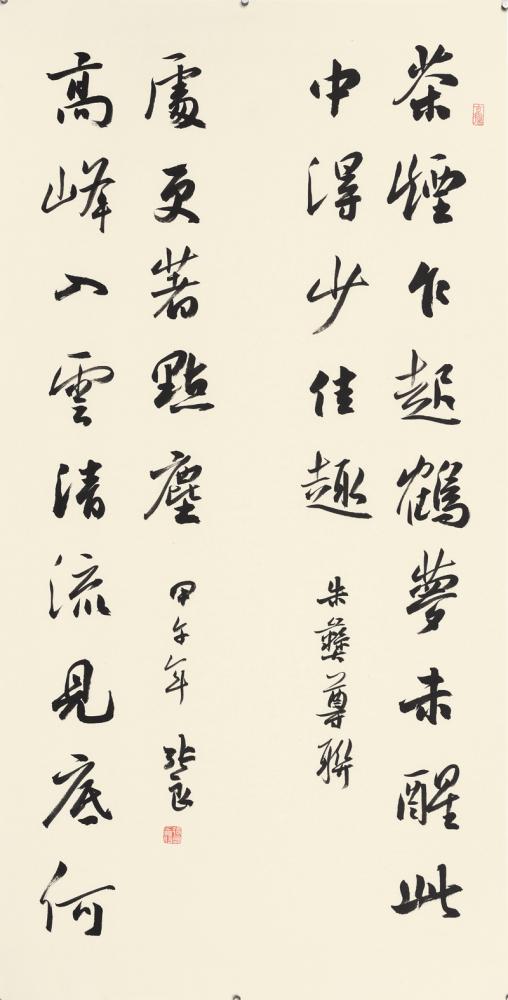 茶煙乍起鶴夢未醒此
中得少佳趣
朱彝尊聯
高峰入雲清流見底何
處更著點塵
甲午年 張良